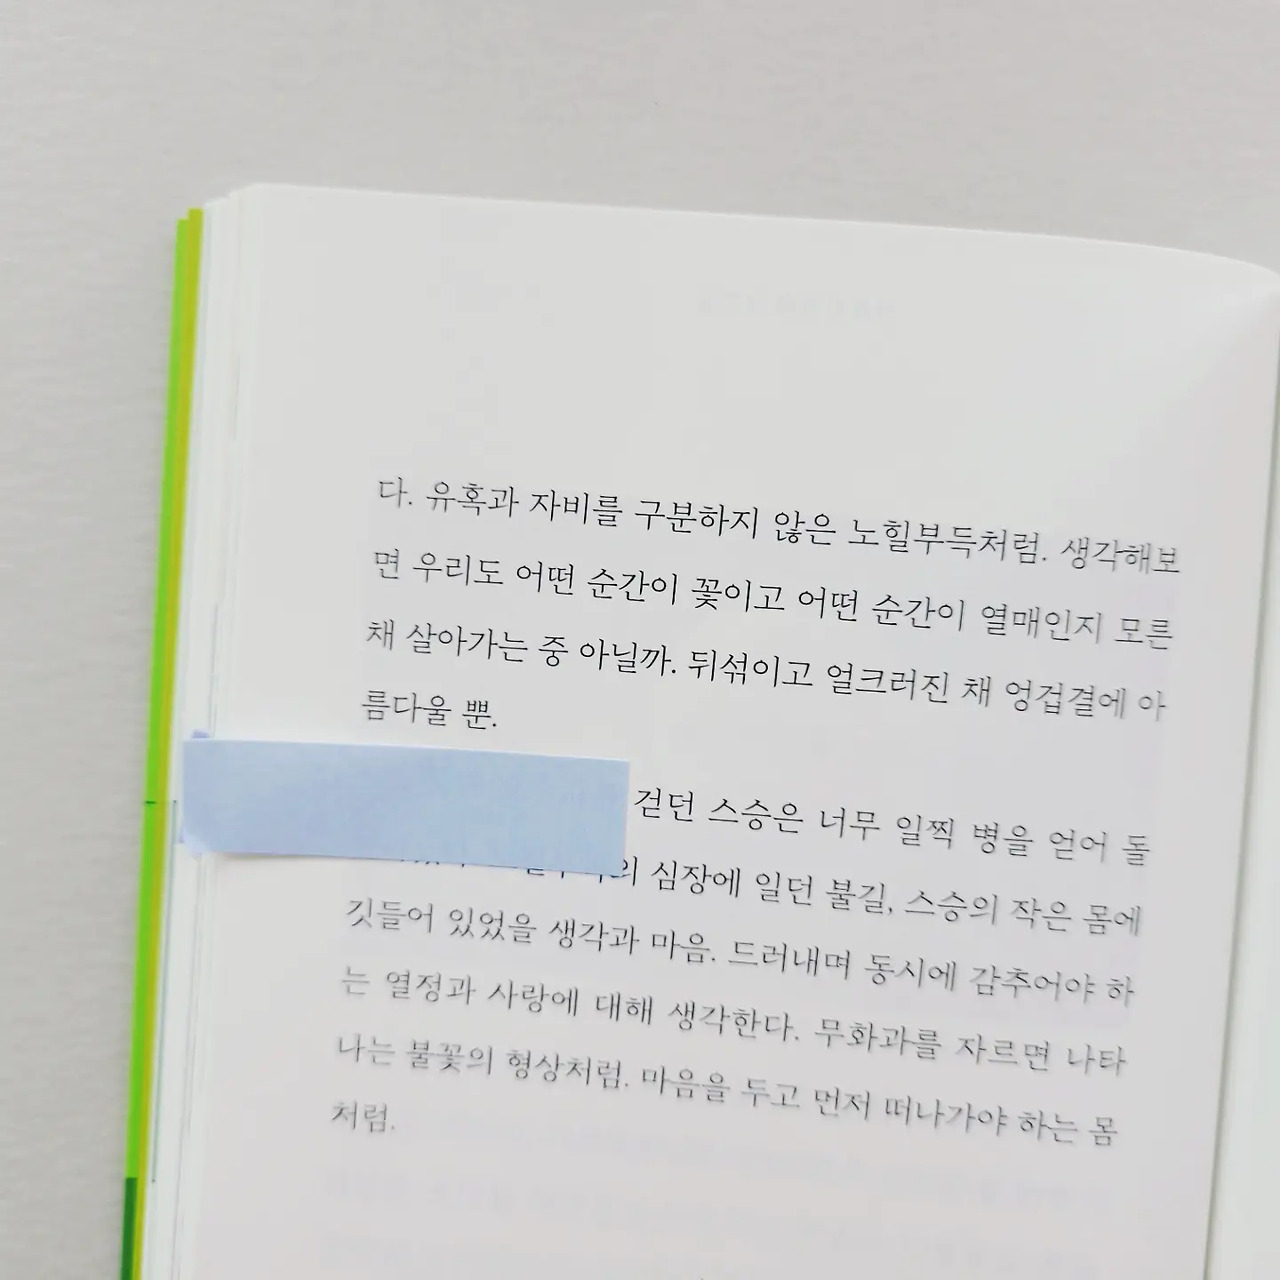 다. 유혹과 자비를 구분하지 않은 노힐부득처럼. 생각해보
면 우리도 어떤 순간이 꽃이고 어떤 순간이 열매인지 모른
채 살아가는 중 아닐까. 뒤섞이고 얼크러진 채 엉겁결에 아
름다울 뿐.
걷던 스승은 너무 일찍 병을 얻어 돌
심장에 일던 불길, 스승의 작은 몸에
깃들어 있었을 생각과 마음. 드러내며 동시에 감추어야 하
는 열정과 사랑에 대해 생각한다. 무화과를 자르면 나타
나는 불꽃의 형상처럼. 마음을 두고 먼저 떠나가야 하는 몸
처럼.